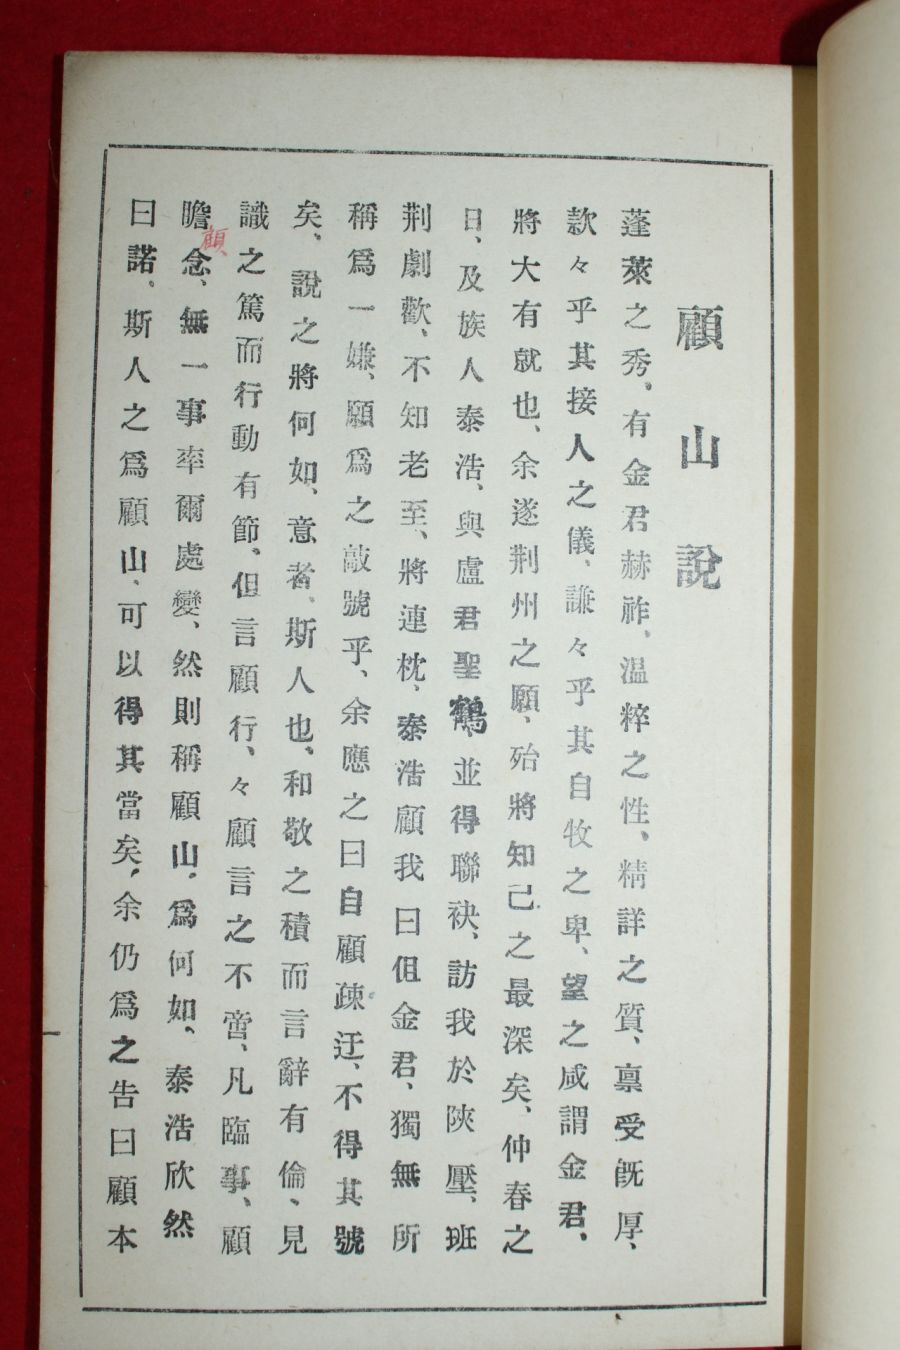 顧山說
蓬萊之秀、有金君赫祚、温粹之性、精詳之質、禀受旣厚、
款々乎其接人之儀、謙々乎其自牧之卑、望之咸謂金君、
將大有就也、余遂荆州之願、殆將知己之最深矣、仲春之
日、及族人泰浩、與盧君聖鶴、並得聯袂、訪我於陜壓、班
荆劇歡、不知老至、將連枕、泰浩顧我曰伹金君、獨無所
稱爲一嫌、願爲之敲號乎、余應之曰自顧疎迂、不得其號
矣、說之將何如、意者、斯人也、和敬之積而言辭有倫、見
識之篤而行動有節、但言顧行、々顧言之不啻、凡臨事、顧
瞻念、無一事率爾處變、然則稱顧山、爲何如、泰浩欣然
顧、
曰諾、斯人之爲顧山、可以得其當矣、余仍爲之告曰顧本